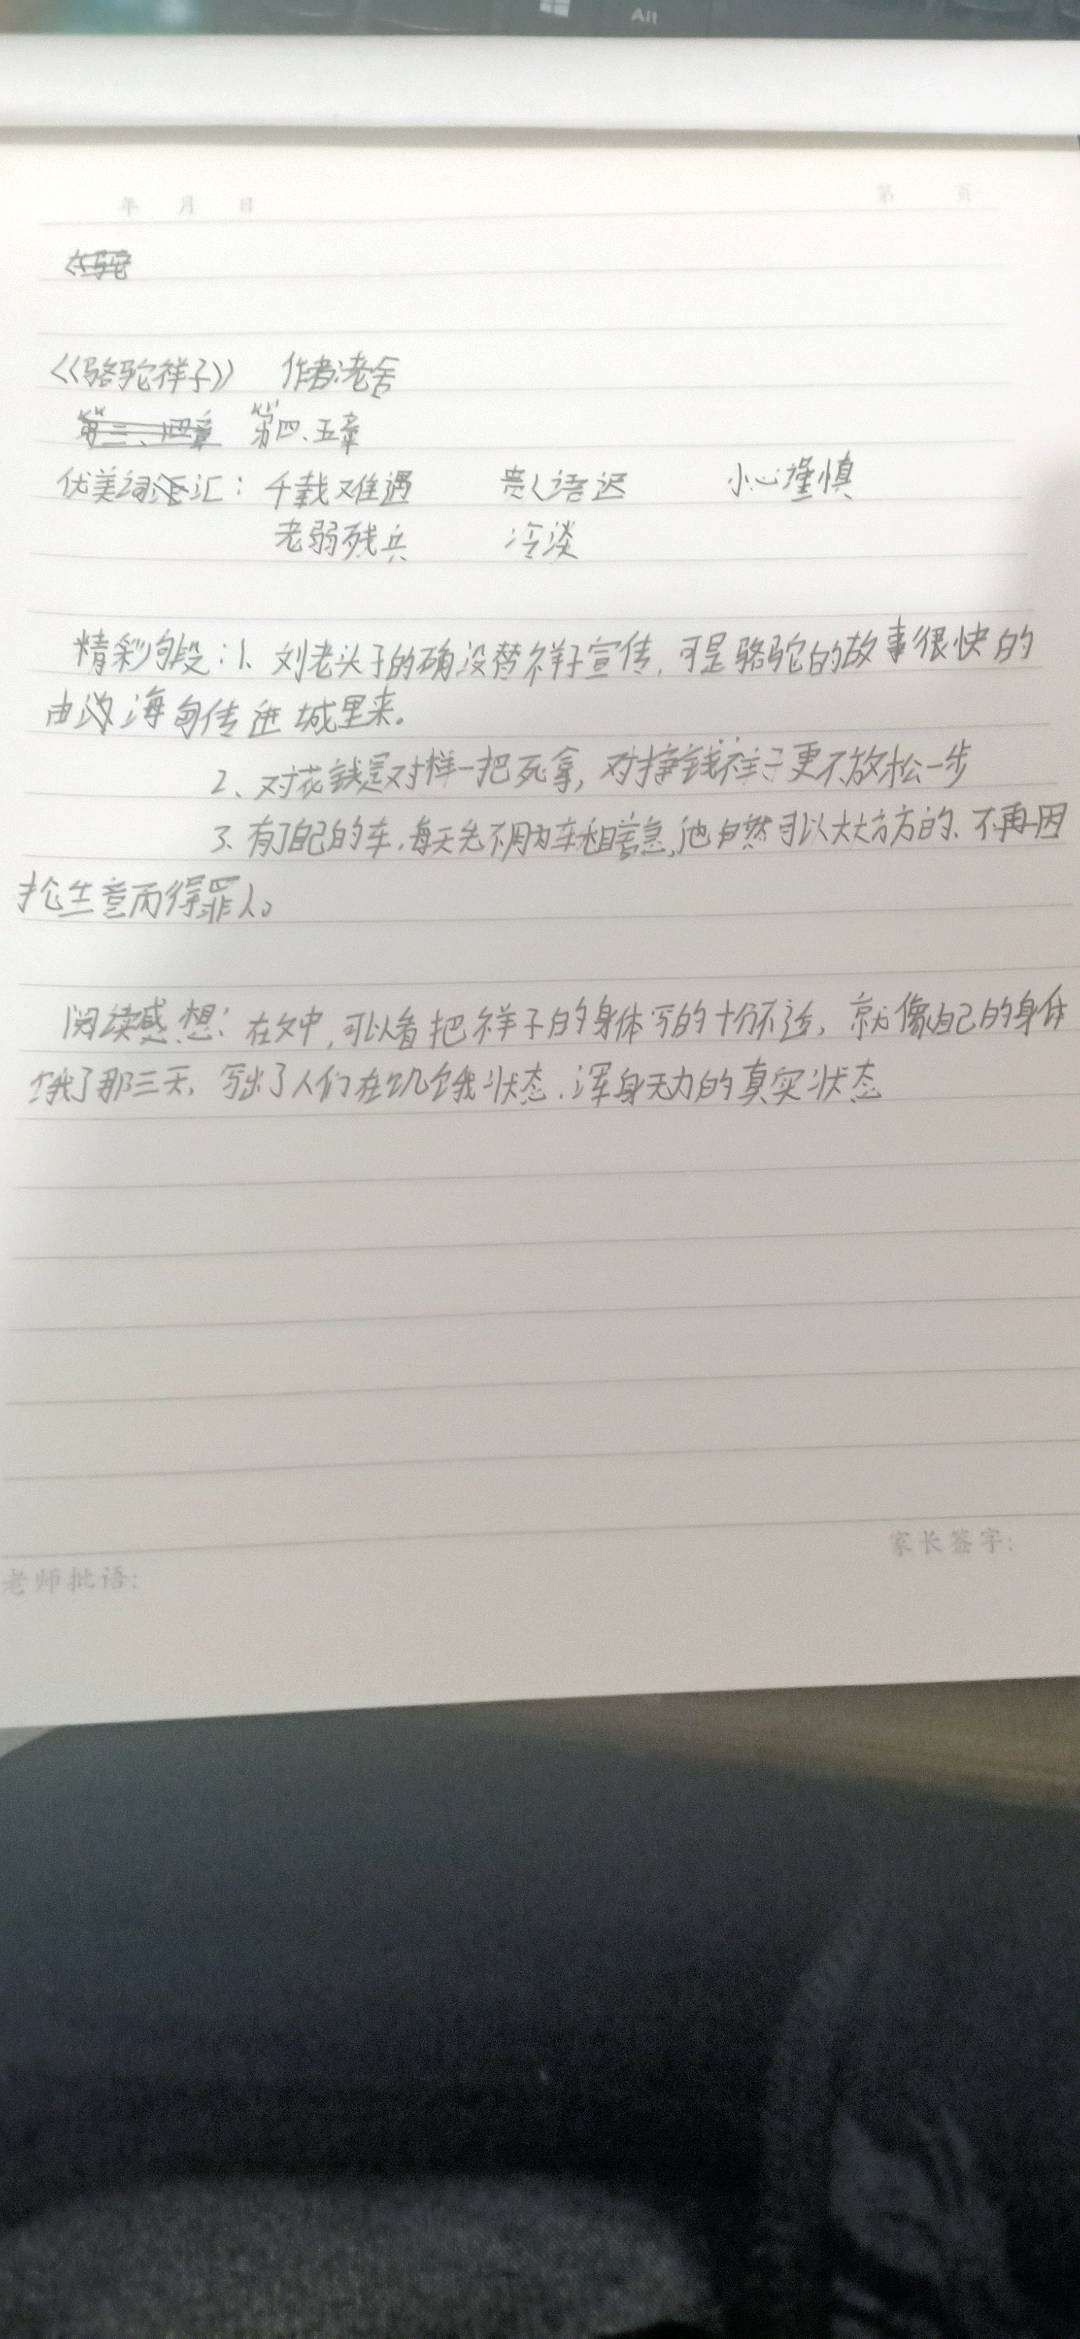 Alt
年 月 日 第 页
《骆驼祥子》 作者:老舍
第三、四章 第四、五章
优美词汇: 千载难遇 贵人语迟 小心谨慎
老弱残兵 冷淡
精彩句段:1、刘老头子的确没替祥子宣传,可是骆驼的故事很快的
由 海甸传进城里来。
2、对花钱是对样一把死拿,对挣钱祥子更不放松一步
3、有了自己的车,每天先不用为车租着急,他自然可以大大方方的、不再因
抢生意而得罪人。
阅读感想:在文中,可以看把祥子的身体写的十分不适,就像自己的身体
饿了那三天,写出了人们在饥饿状态,浑身无力的真实状态
家长签字:
老师批语: